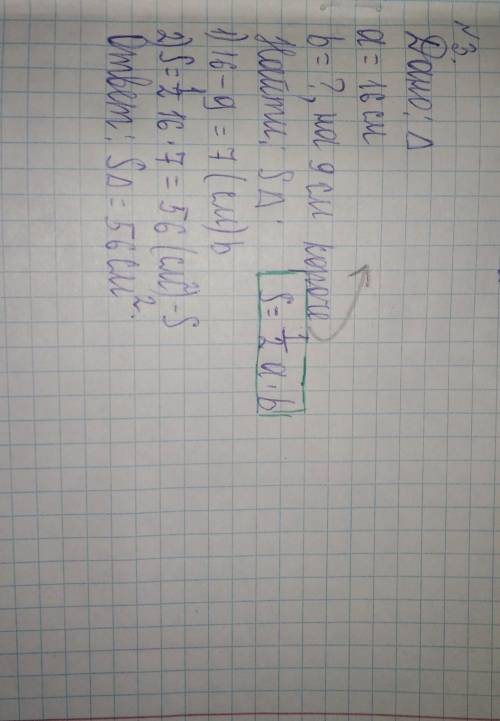 №3.
Дано: Δ
a = 16 см
b = ?, на 9 см короче
Найти: SΔ. S = 1/2 a · b
1) 16 - 9 = 7 (см) b
2) S = 1/2 16 · 7 = 56 (см²) - S
Ответ: SΔ = 56 см².